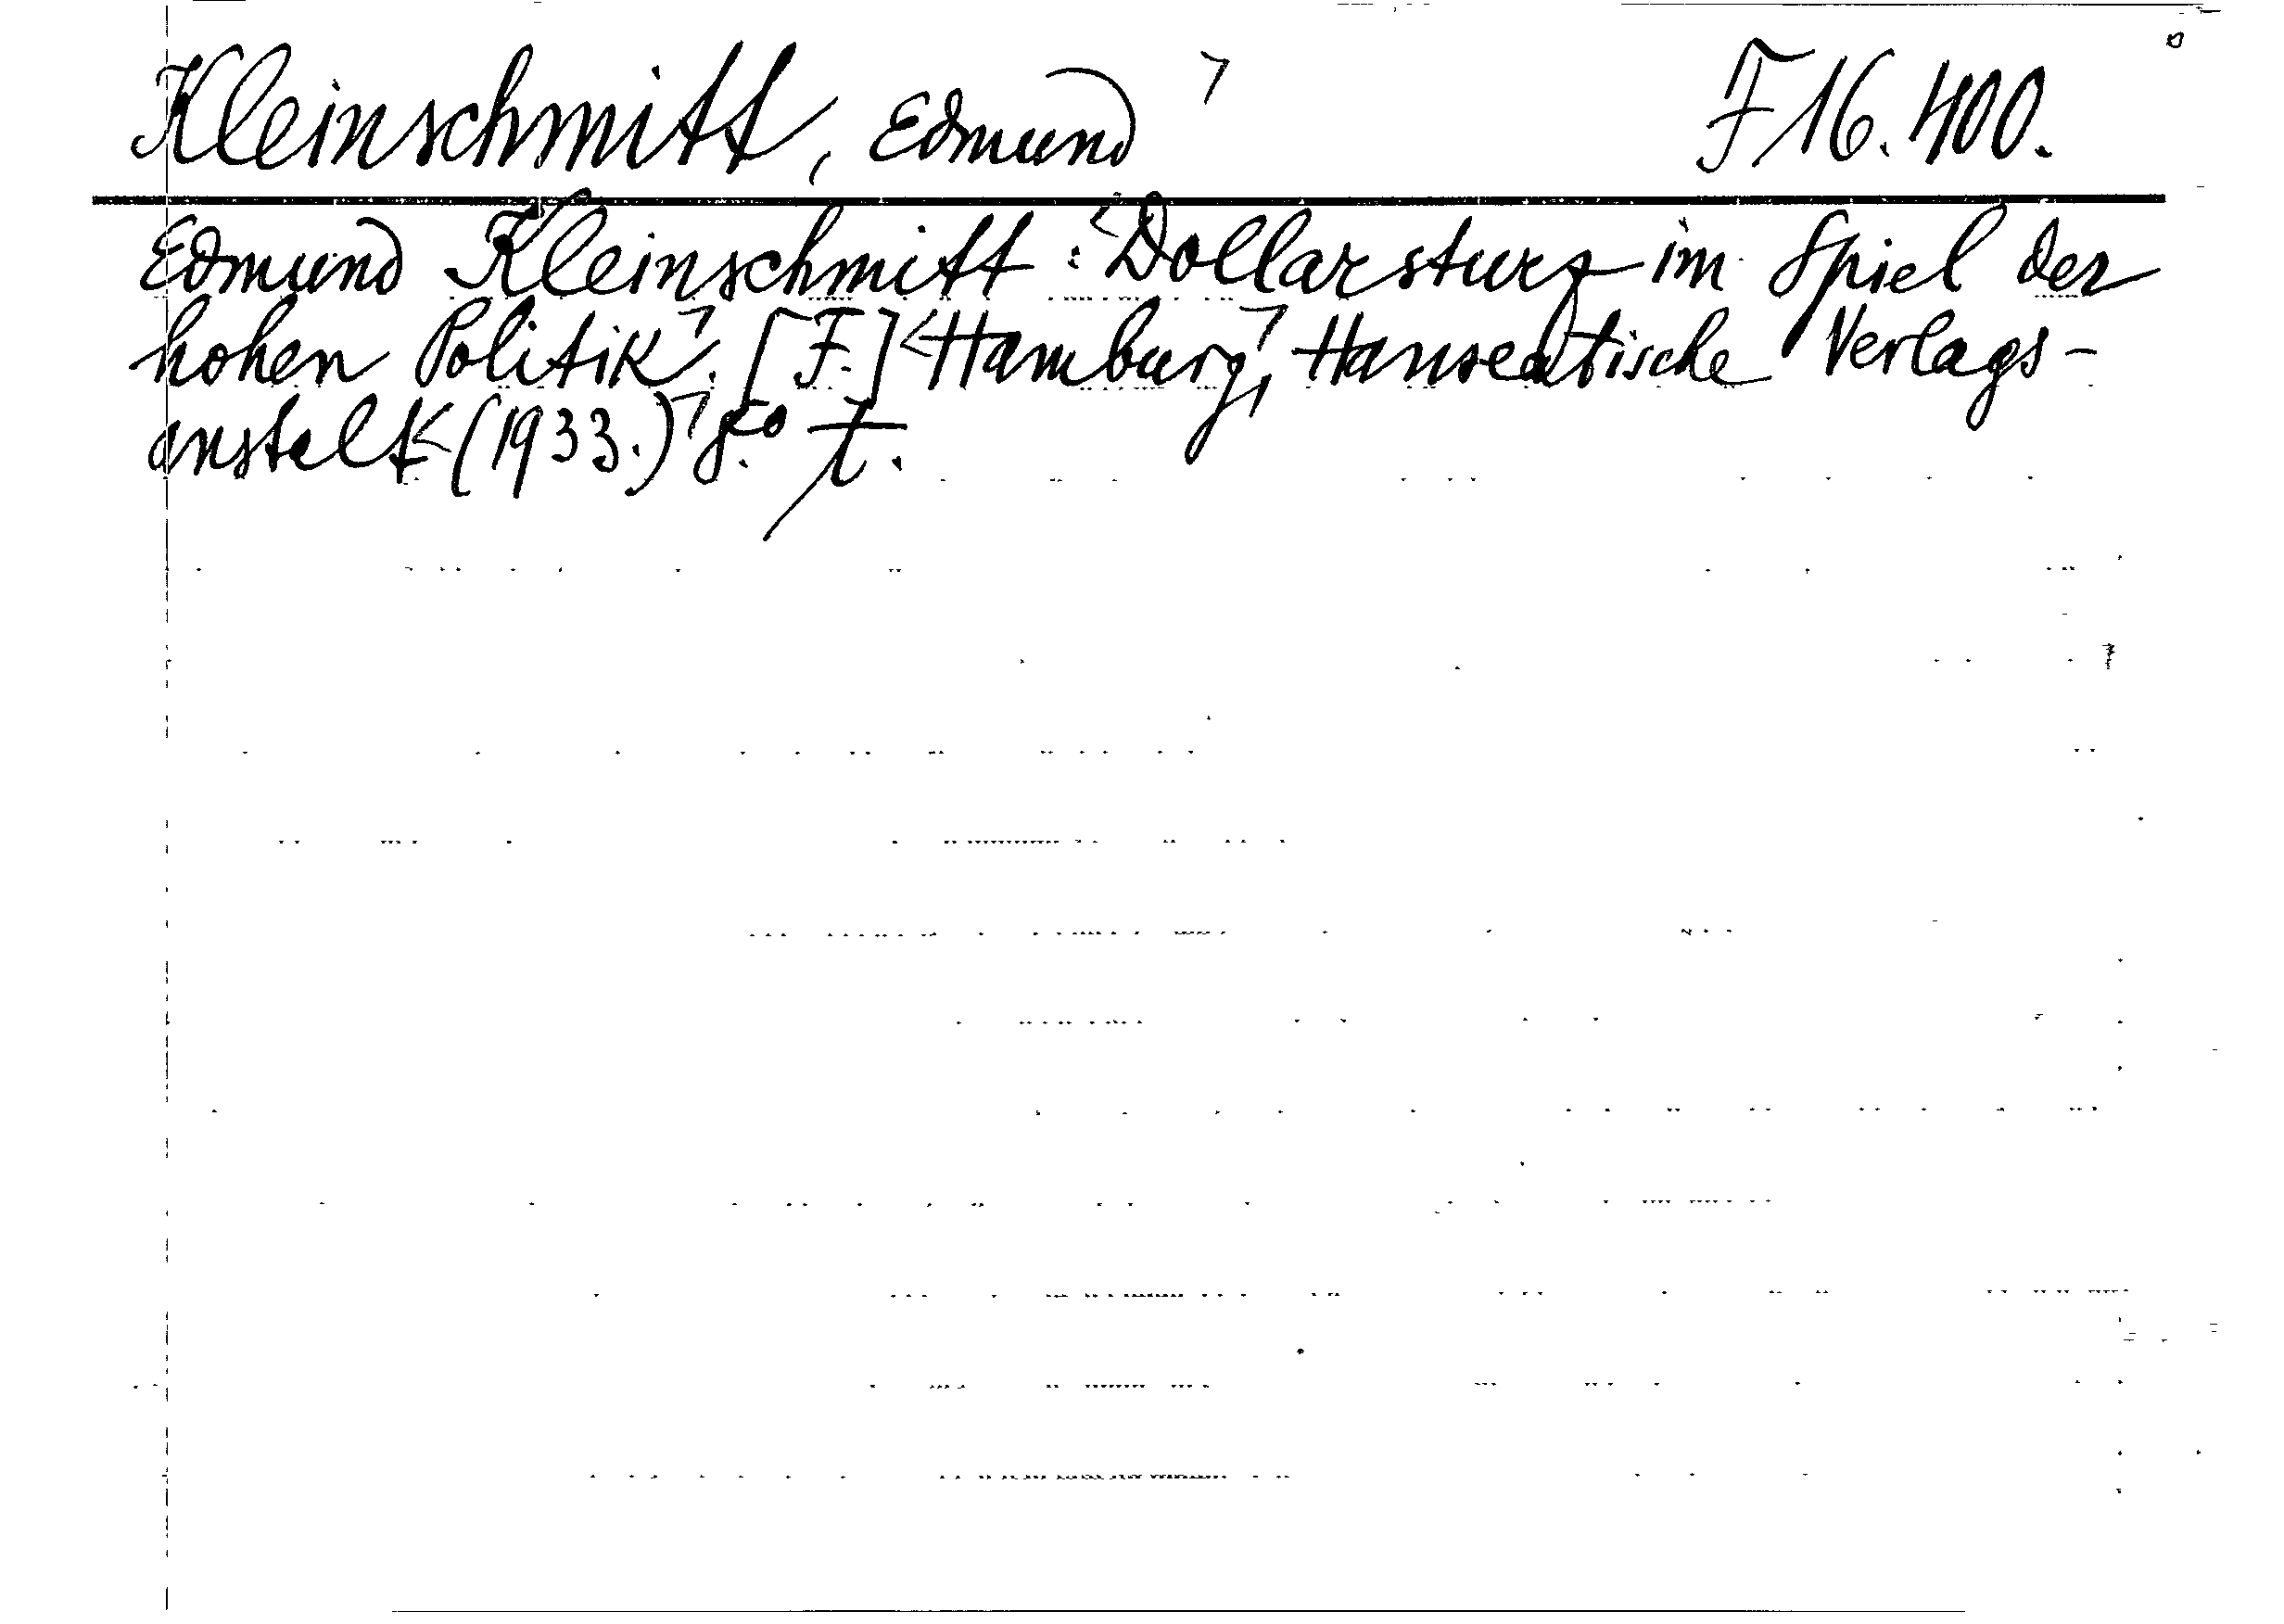 Kleinschmitt, Edmund F 16.400.
Edmund Kleinschmitt: Dollarsturz im Spiel der
hohen Politik. [F.] Hamburg, Hanseatische Verlags-
anstalt (1933.) 8.º